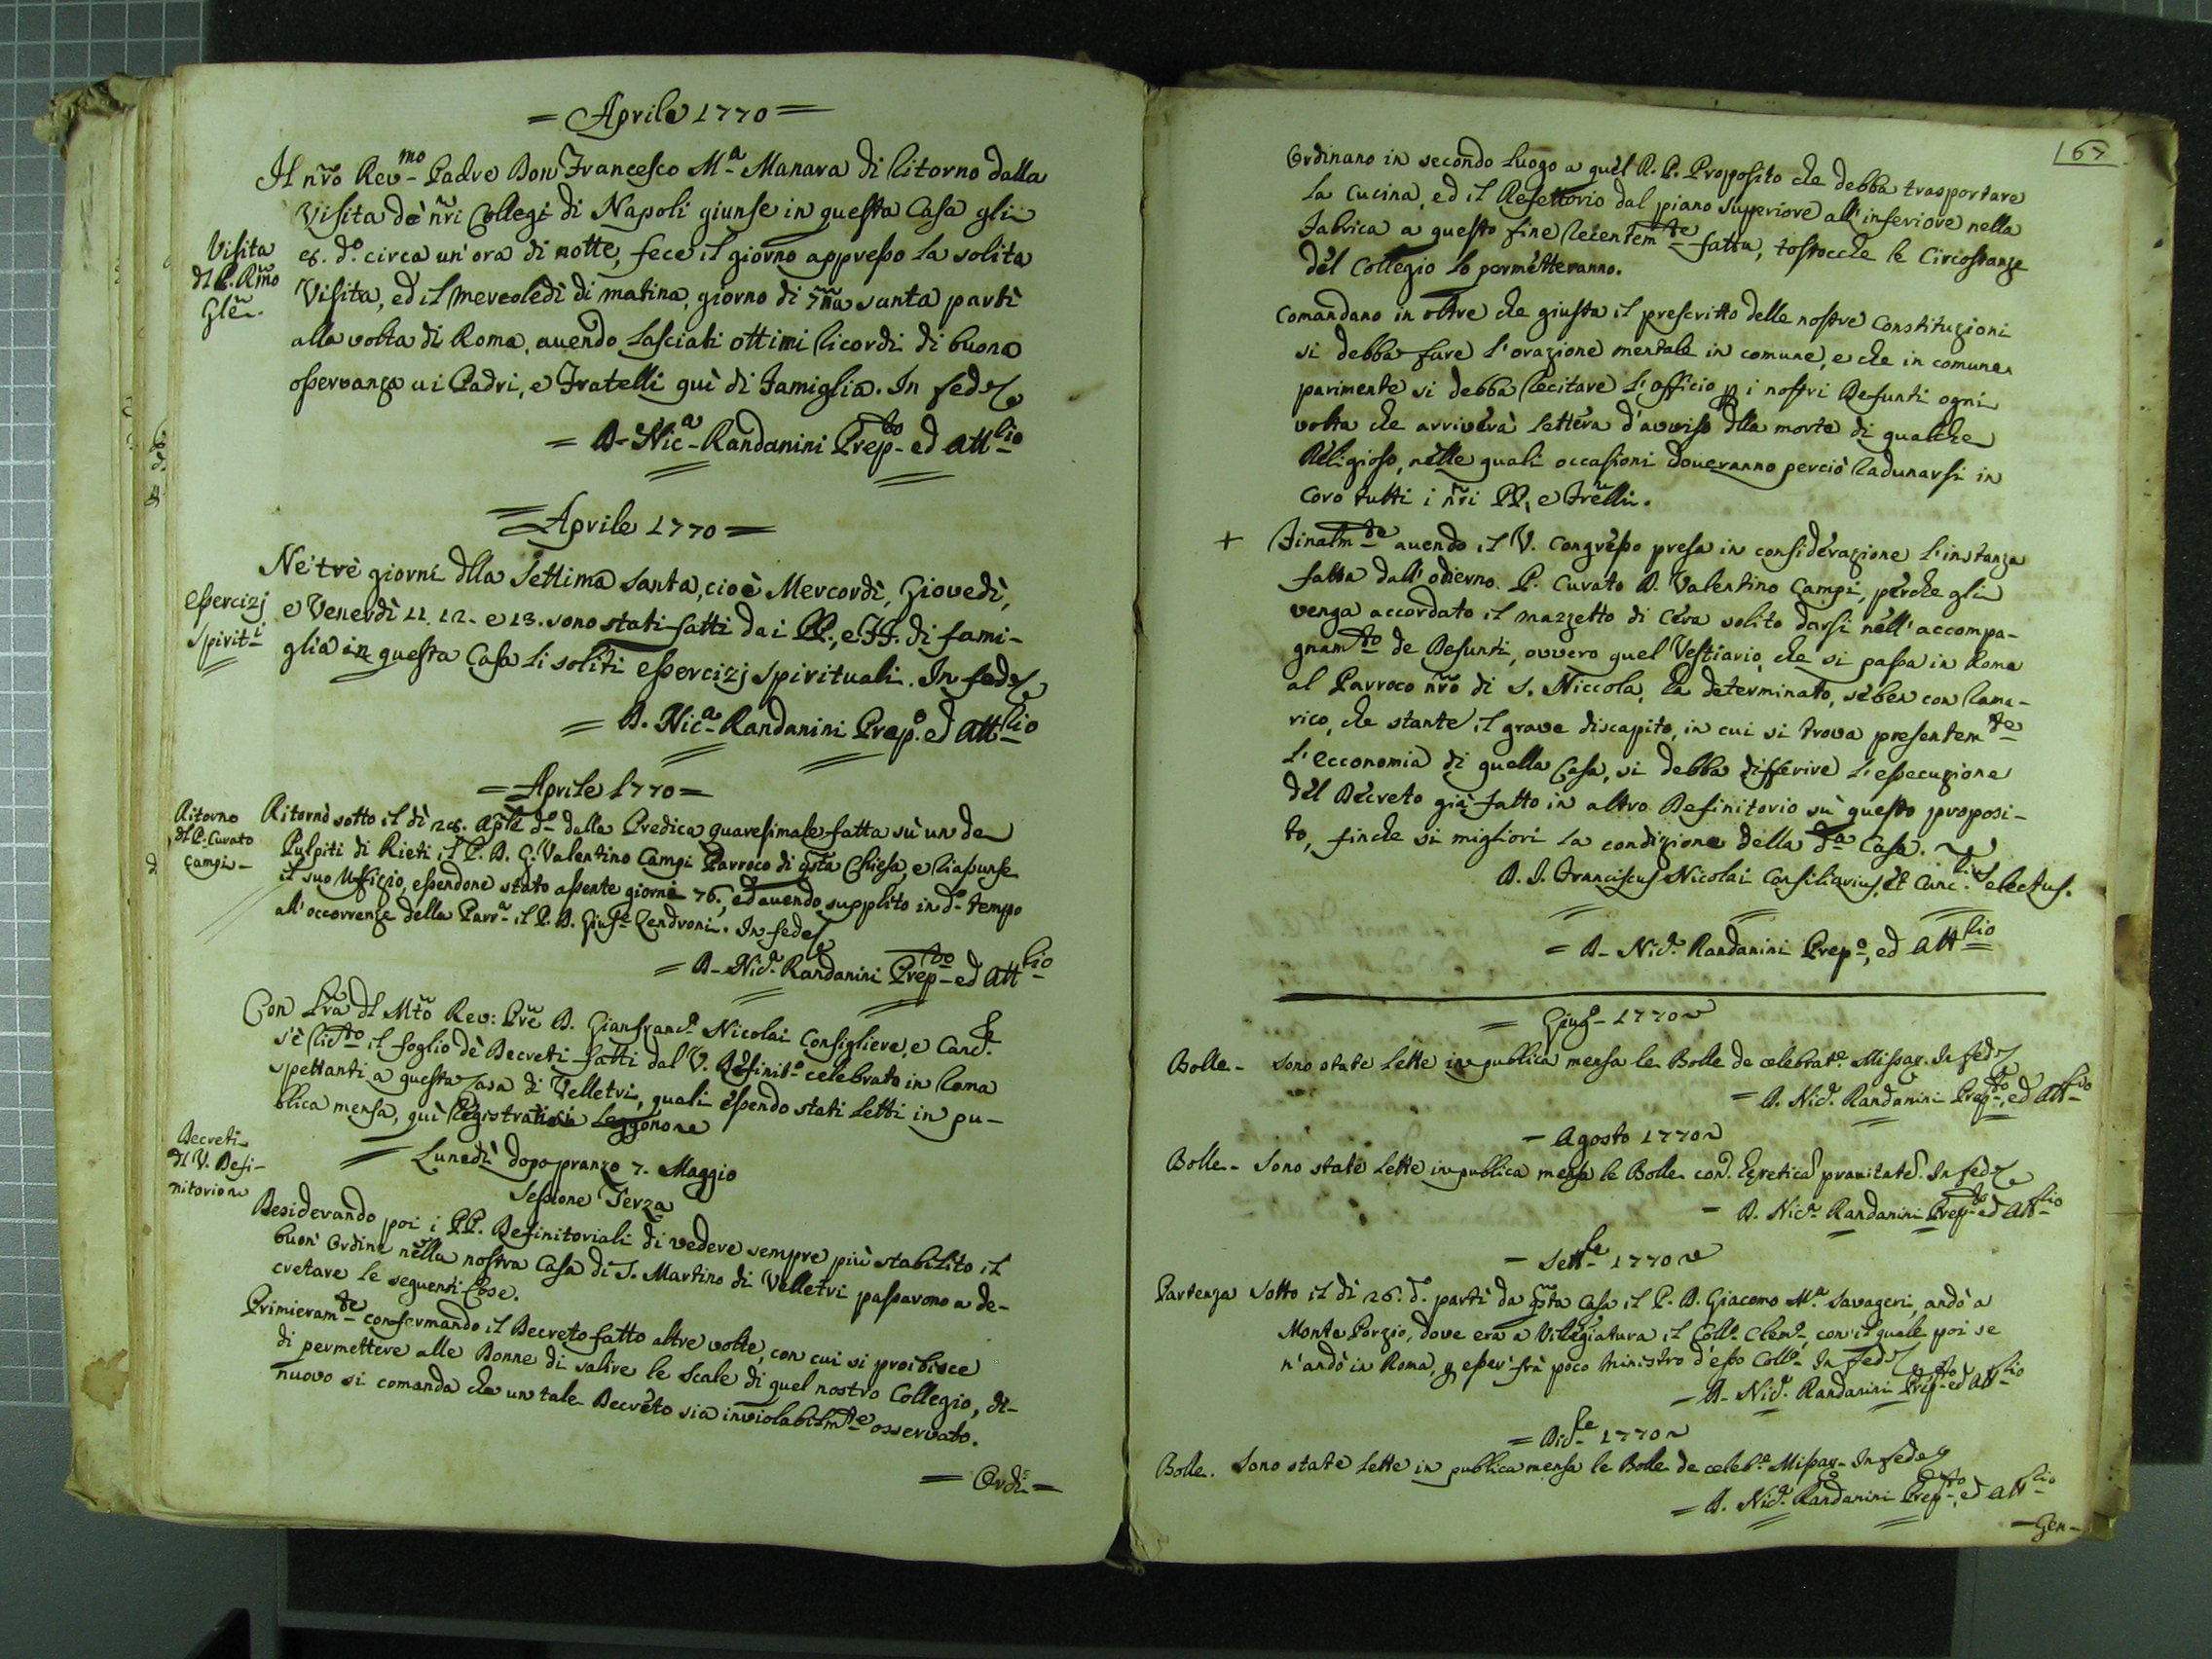 = Aprile 1770 =
Il nr̃o Rev.mo Padre Don Francesco M.a Manara di ritorno dalla
Visita de' nr̃i Collegi di Napoli giunse in questa Casa gli
Visita
dl P. Rm̃o
Gle͂n.
d.o circa un' ora di notte, fece il giorno appresso la solita
Visita, ed il mercoledì di matina, giorno di 7m̃a santa partì
alla volta di Roma, avendo lasciati ottimi ricordi di buona
osservanza ai Padri, e Fratelli quì di Famiglia. In fede
= D. Nic.a Randanini Prep.to ed Att.rio
= Aprile 1770 =
Ne' trè giorni dlla Settima santa, cioè Mercordì, Giovedì,
essercizj
spirit.i
e Venerdì 11. 12. e 13. sono stati fatti dai PP., e FF. di fami-
glia in questa Casa li soliti essercizj spirituali. In fede
= D. Nic.a Randanini Prep.o ed Att.rio
= Aprile 1770 =
Ritorno
dl P. Curato
Campi
Ritornò sotto il dì 28. Aple d.o dalla Predica quaresimale fatta sù un de
Pulpiti di Rieti il P. D. G. Valentino Campi Parroco di qsta Chiesa, e riassunse
il suo Ufficio, essendone stato assente giorni 76., ed avendo supplito in d.o tempo
all' occorrenze della Parr.a il P. D. Gius.e Zendroni. In fede
= D. Nic.a Randanini Prep.to ed Att.rio
Con lr̃a dl Mt̃o Rev: Pr̃e D. Gianfranc.o Nicolai Consigliere, e Canc.re
s'è ric.to il foglio de' Decreti fatti dal V. Definit.o celebrato in Roma
spettanti a questa Casa di Velletri, quali essendo stati letti in pu-
blica mensa, quì registrati si leggono
Decreti
dl V. Defi-
nitorio
= Lunedì dopo pranzo 7. Maggio
Sessione Terza
Desiderando poi i PP. Definitoriali di vedere sempre più stabilito il
buon' ordine nella nostra Casa di S. Martino di Velletri passarono a de-
cretare le seguenti Cose.
Primieram.te confermando il Decreto fatto altre volte, con cui si proibisce
di permettere alle Donne di salire le Scale di quel nostro Collegio, di-
nuovo si comanda che un tale Decreto sia inviolabilm.te osservato.
= Ordi- =
167
Ordinano in secondo luogo a quel R. P. Proposito che debba trasportare
la Cucina, ed il Refettorio dal piano superiore all' inferiore nella
Fabrica a questo fine recentem.te fatta, tostocche le Circostanze
del Collegio lo permetteranno.
Comandano in oltre che giusta il prescritto delle nostre Constituzioni
si debba fare l'orazione mentale in comune, e che in comune
parimente si debba recitare l'officio p i nostri Defunti ogni
volta che arriverà lettera d'avviso dlla morte di qualche
Religioso, nelle quali occasioni doveranno perciò radunarsi in
Coro tutti i nr̃i PP., e Frelli.
+ Finalm.te avendo il V. Congresso presa in considerazione l'instanza
fatta dall' odierno P. Curato D. Valentino Campi, perche gli
venga accordato il mazzetto di Cera solito darsi nell' accompa-
gnam.to de Defunti, ovvero quel Vestiario, che si passa in Roma
al Parroco nr̃o di S. Niccola, ha determinato, seben con ramma-
rico, che stante il grave discapito, in cui si trova presentem.te
l'ecconomia di quella Casa, si debba differire l'essecuzione
del Decreto già fatto in altro Definitorio sù questo proposi-
to, finche si migliori la condizione della d.a Casa.
D. J. Franciscus Nicolai Consiliarius, et Canc.rius electus.
= D. Nic.a Randanini Prep.o, ed Att.rio
= Giug.o 1770
Bolle - Sono state lette in publica mensa le Bolle de celebrat.e Missar. In fede
= D. Nic.a Randanini Prep.to, ed Att.rio
= Agosto 1770
Bolle - Sono state lette in publica mensa le Bolle con. Eretica pravitate. In fede
= D. Nic.a Randanini Prep.to ed Att.rio
= Sett.re 1770
Partenza Sotto il dì 26. d.o partì da qsta Casa il P. D. Giacomo M.a Savageri, andò a
Monte Porzio, dove era a Villegiatura il Coll.o Clem.o, con il quale poi se
n'andò in Roma, p esser' frà poco Ministro d'esso Coll.o In fede
= D. Nic.a Randanini Prep.to ed Att.rio
= Dic.re 1770
Bolle. Sono state lette in publica mensa le Bolle de celeb.e Missar. In fede
= D. Nic.a Randanini Prep.to, ed Att.rio
= Gen-